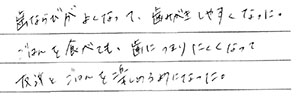 歯ならびがよくなって、歯みがきしやすくなった。
ごはんを食べても、歯につまりにくくなって
友達とごはんを楽しめるようになった。